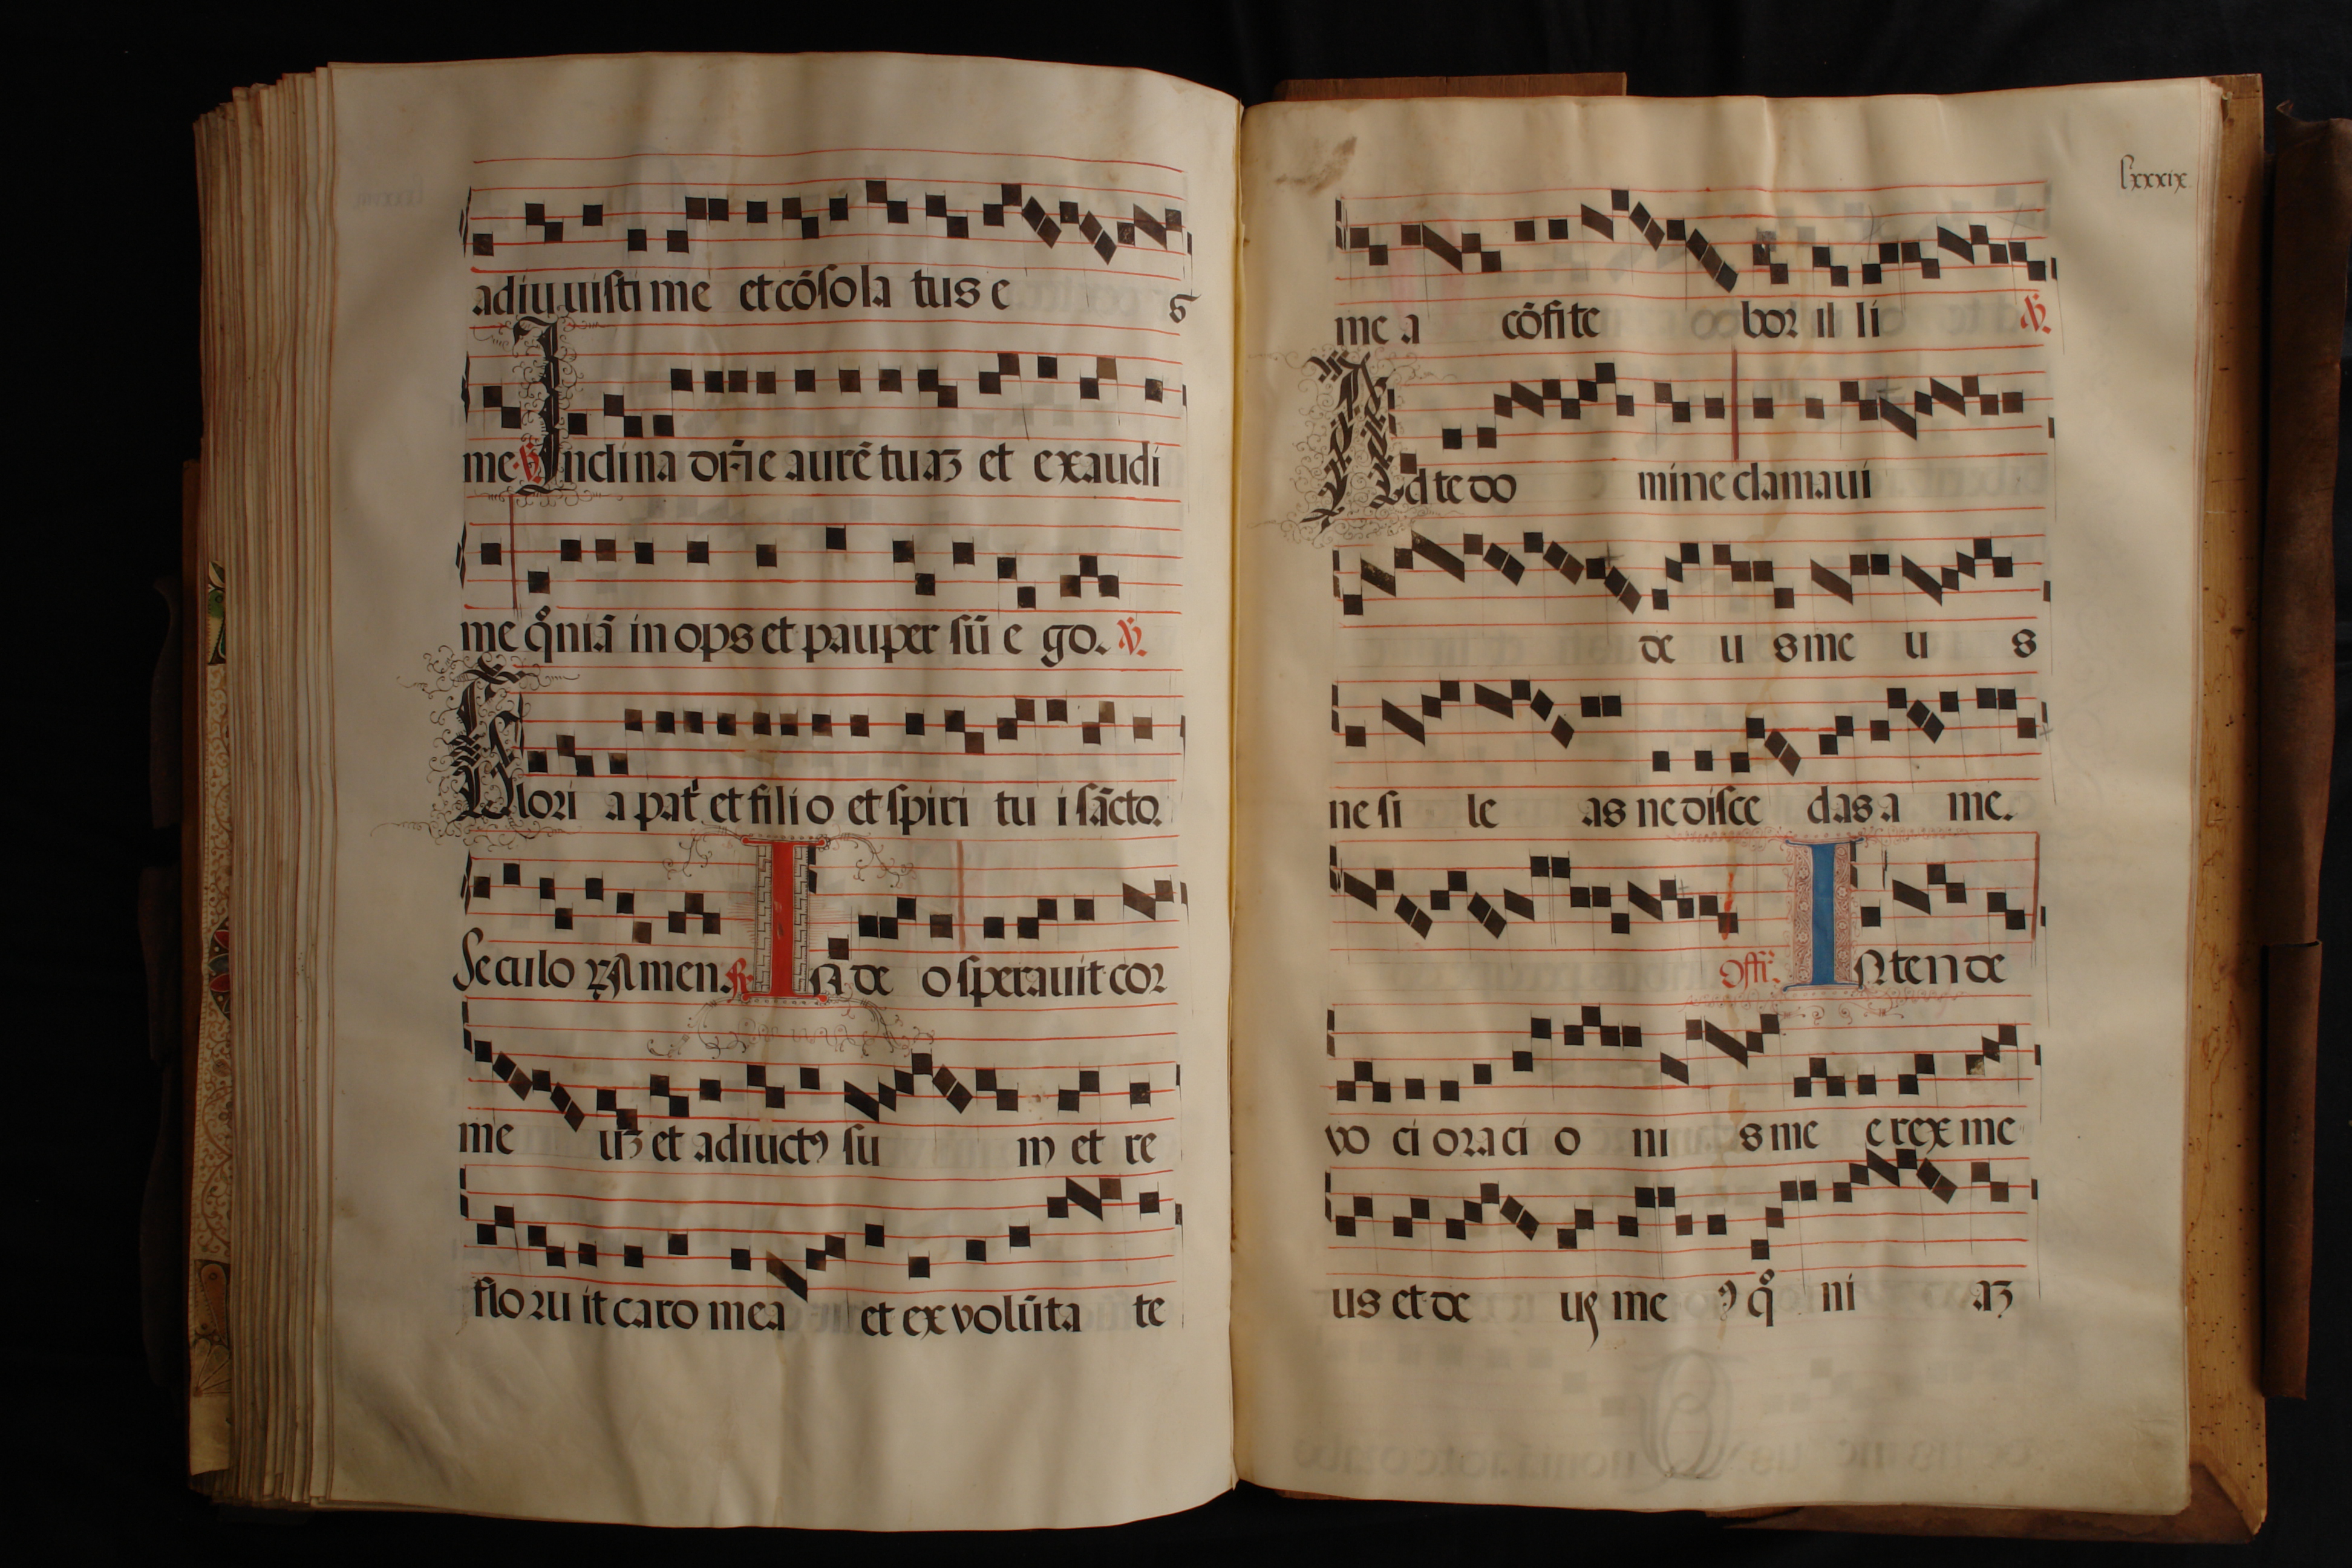 adiuuisti me et cōsola tus e s
me. ℟ Inclina dn̄e aurē tuaʒ et exaudi
me qͦniā inops et pauper sū e go. ℣.
Glori a pat̛ et filio et spiri tu i sācto.
Seculoꝝ Amen. ℟. In de o sperauit cor
me uʒ et adiutꝯ su m et re
floru it caro mea et ex volūta te
lxxxix
me a cōfite bor il li ℣.
Ad te do mine clamaui
de u s me u s
ne si le as ne disce das a me.
Offr̄. Inten de
vo ci oraci o ni s me e rex me
us et de us me ꝯ qͦ ni aʒ